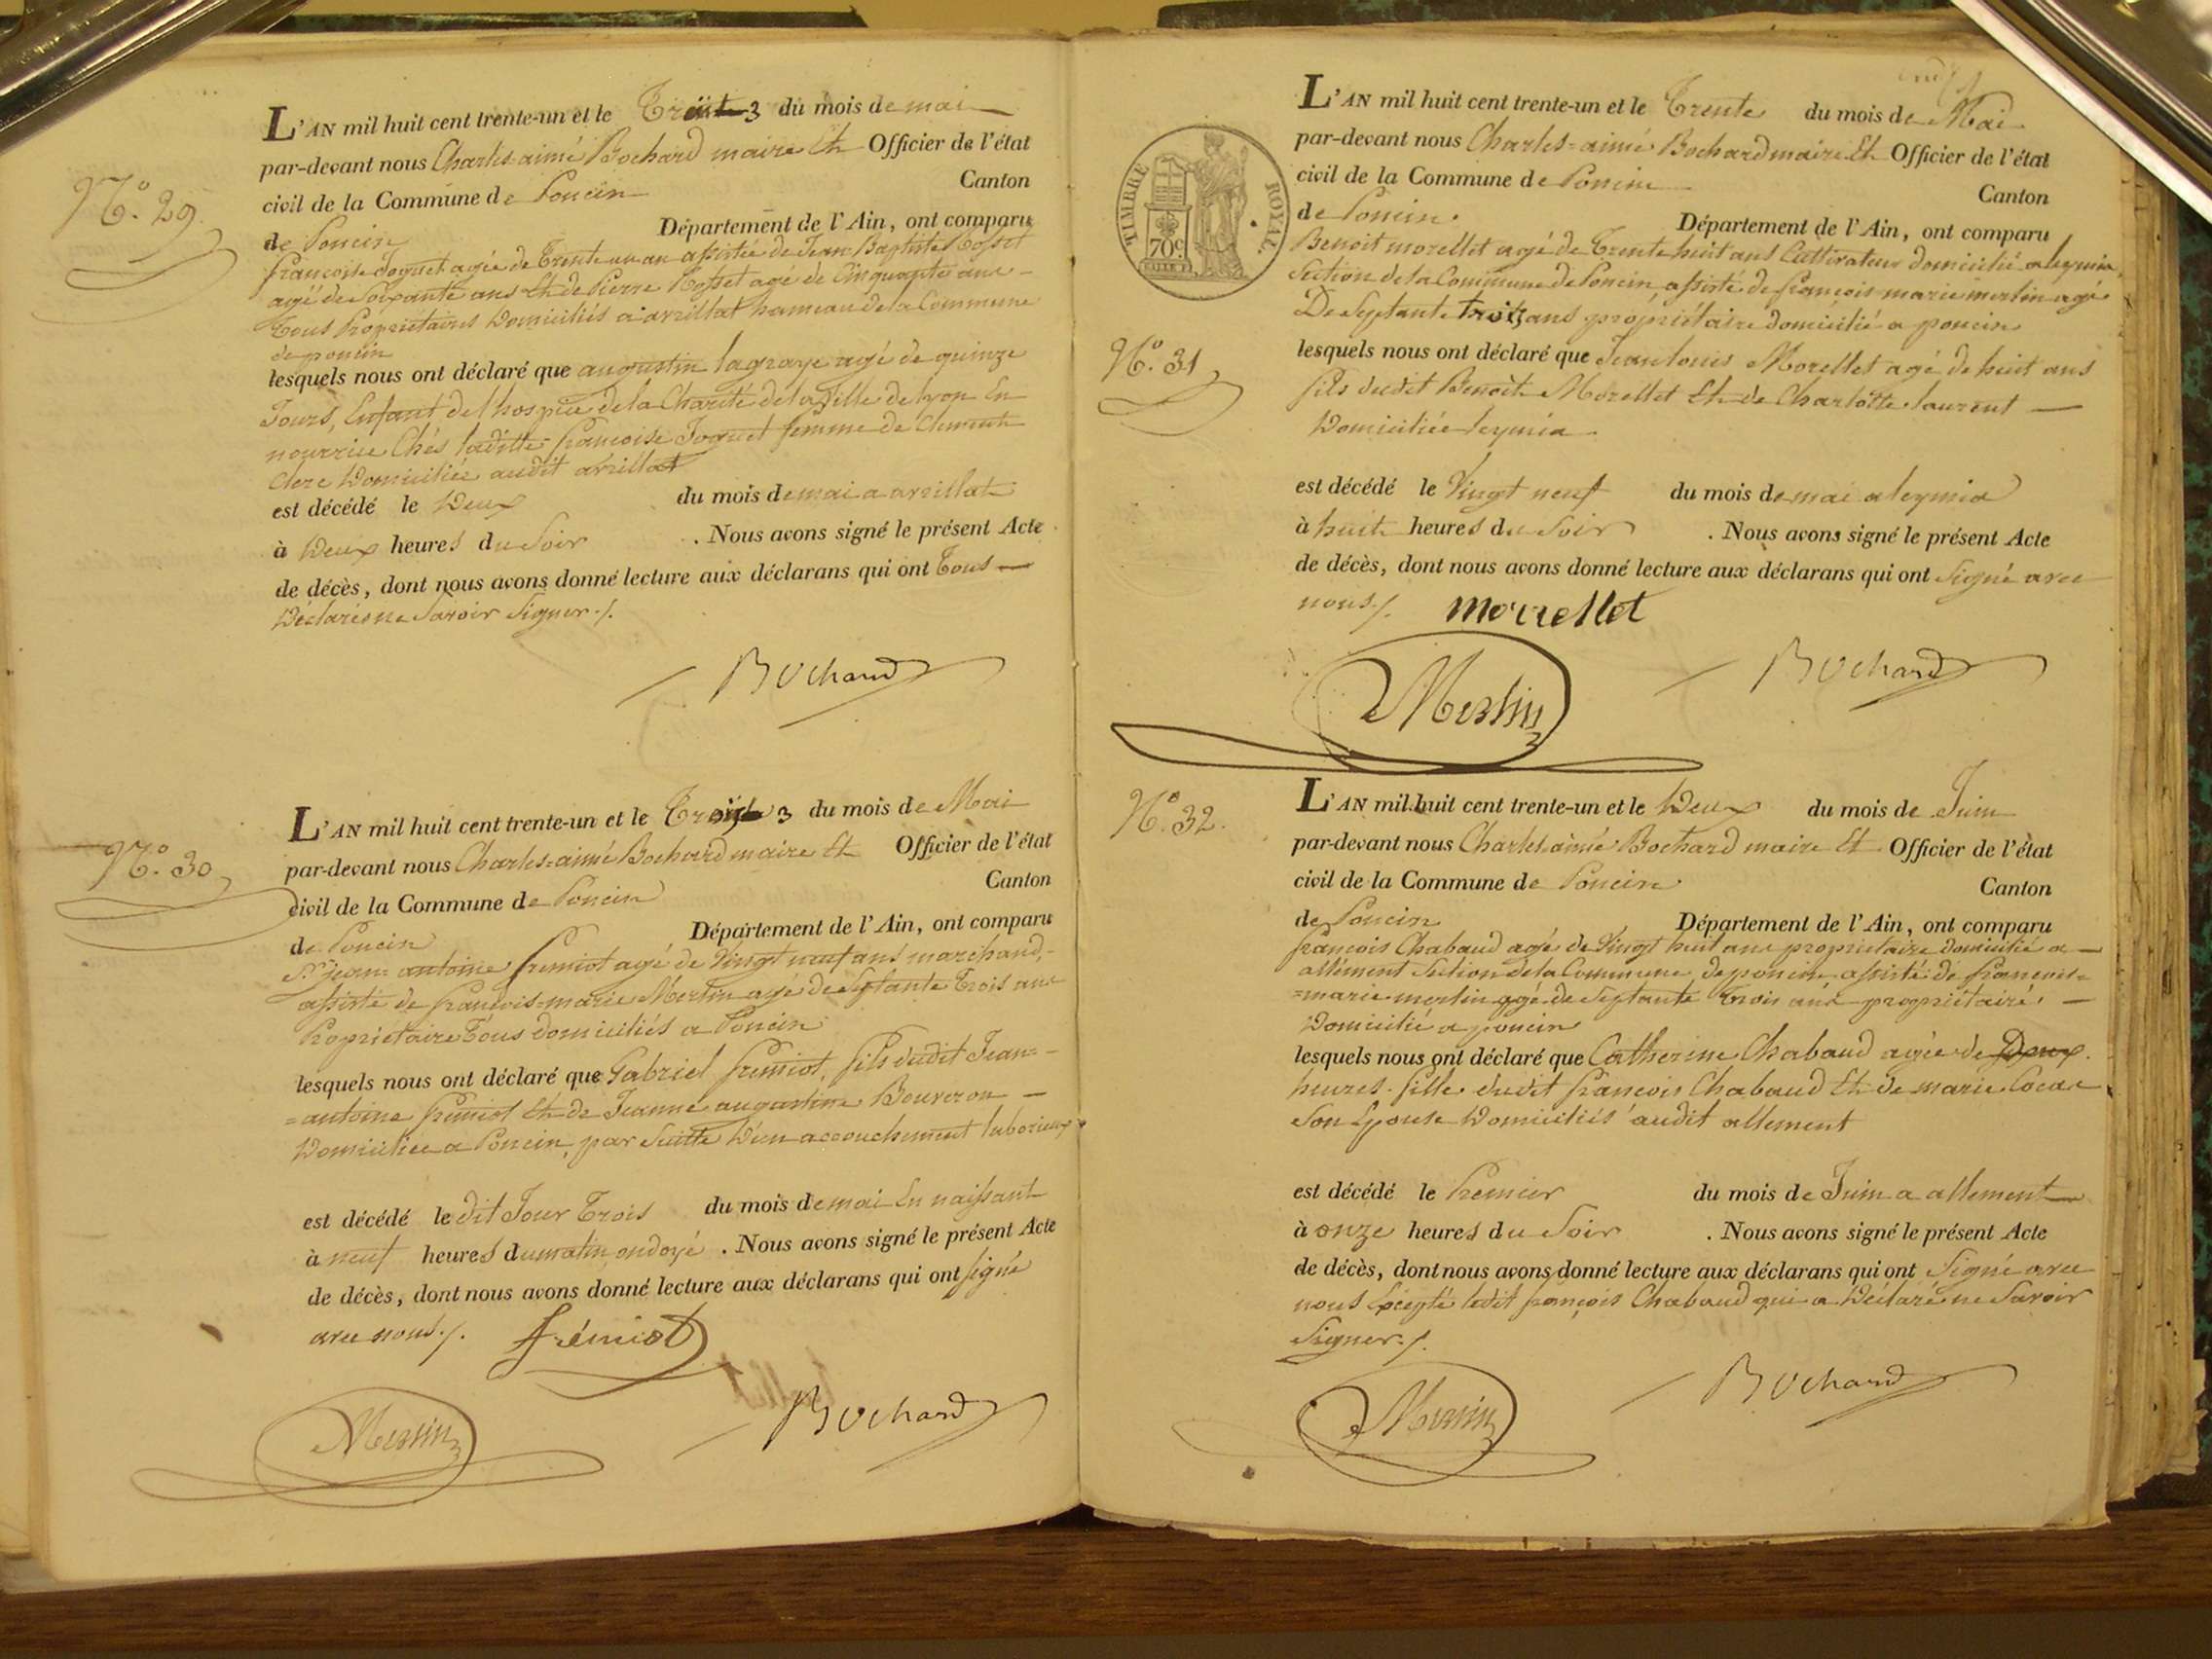 N.º 29.
L'AN mil huit cent trente-un et le Trois 3 du mois de mai
par-devant nous Charles=aimé Bochard maire Et Officier de l'état
civil de la Commune de Poncin Canton
de Poncin Département de l'Ain, ont comparu
françoise Joguet agée de Trente un an assistée de Jean Baptiste Rosset
agé de Soixante ans Et de Pierre Rosset agé de Cinquante ans
Tous Propriétaires Domiciliés a arzillat hameau de la Commune
de poncin
lesquels nous ont déclaré que augustin lagraye agé de quinze
Jours, Enfant de l'hospice de la Charité de la Ville de lyon En
nourrice Chés laditte françoise Joguet femme de Clement
Clerc Domiciliée audit arzillat
est décédé le Deux du mois de mai a arzillat
à Deux heures du Soir . Nous avons signé le présent Acte
de décès, dont nous avons donné lecture aux déclarans qui ont Tous
Déclarés ne Savoir Signer ./.
Bochard
N.º 30
L'AN mil huit cent trente-un et le Trois 3 du mois de Mai
par-devant nous Charles=aimé Bochard maire Et Officier de l'état
civil de la Commune de Poncin Canton
de Poncin Département de l'Ain, ont comparu
jean antoine fremiot agé de Vingt neuf ans marchand,
assisté de françois=marie Merlin agé de Septante Trois ans
Propriétaire Tous domiciliés a Poncin
lesquels nous ont déclaré que Gabriel fremiot, fils dudit Jean=
=antoine fremiot Et de Jeanne augustine Bouveron
Domiciliée a Poncin, par Suitte D'un accouchement laborieux
est décédé le dit Jour Trois du mois de mai En naissant
à neuf heures du matin ondoyé . Nous avons signé le présent Acte
de décès, dont nous avons donné lecture aux déclarans qui ont signé
avec nous ./. frémiot
Merlin Bochard
TIMBRE ROYAL
70c
N.º 31
L'AN mil huit cent trente-un et le Trente du mois de Mai
par-devant nous Charles=aimé Bochard maire Et Officier de l'état
civil de la Commune de Poncin Canton
de Poncin. Département de l'Ain, ont comparu
Benoit morellet agé de Trente huit ans Cultivateur domicilié a leymia,
Section de la Commune de Poncin, assisté de françois=marie merlin agé
De Septante troiz ans propriétaire domicilié a poncin
lesquels nous ont déclaré que Jean louis Morellet agé de huit ans
fils dudit Benoit Morellet Et de Charlotte laurent
Domiciliée leymia
est décédé le Vingt neuf du mois de mai a leymia
à huit heures du Soir . Nous avons signé le présent Acte
de décès, dont nous avons donné lecture aux déclarans qui ont Signé avec
nous ./. morrellet
Merlin Bochard
N.º 32.
L'AN mil huit cent trente-un et le Deux du mois de Juin
par-devant nous Charles-aimé Bochard maire Et Officier de l'état
civil de la Commune de Poncin Canton
de Poncin Département de l'Ain, ont comparu
françois Chabaud agé de Vingt huit ans propriétaire domicilié a
allement Section de la Commune de poncin assisté de françois=
=marie merlin agé de Septante Trois ans propriétaire,
Domicilié a poncin
lesquels nous ont déclaré que Catherine Chabaud agée de Deux
heures. fille dudit françois Chabaud Et de marie Cocar
Son Epouse Domiciliés audit allement
est décédé le Premier du mois de Juin a allement
à onze heures du Soir . Nous avons signé le présent Acte
de décès, dont nous avons donné lecture aux déclarans qui ont Signé avec
nous Excepté ledit françois Chabaud qui a Déclaré ne Savoir
Signer ./.
Merlin Bochard